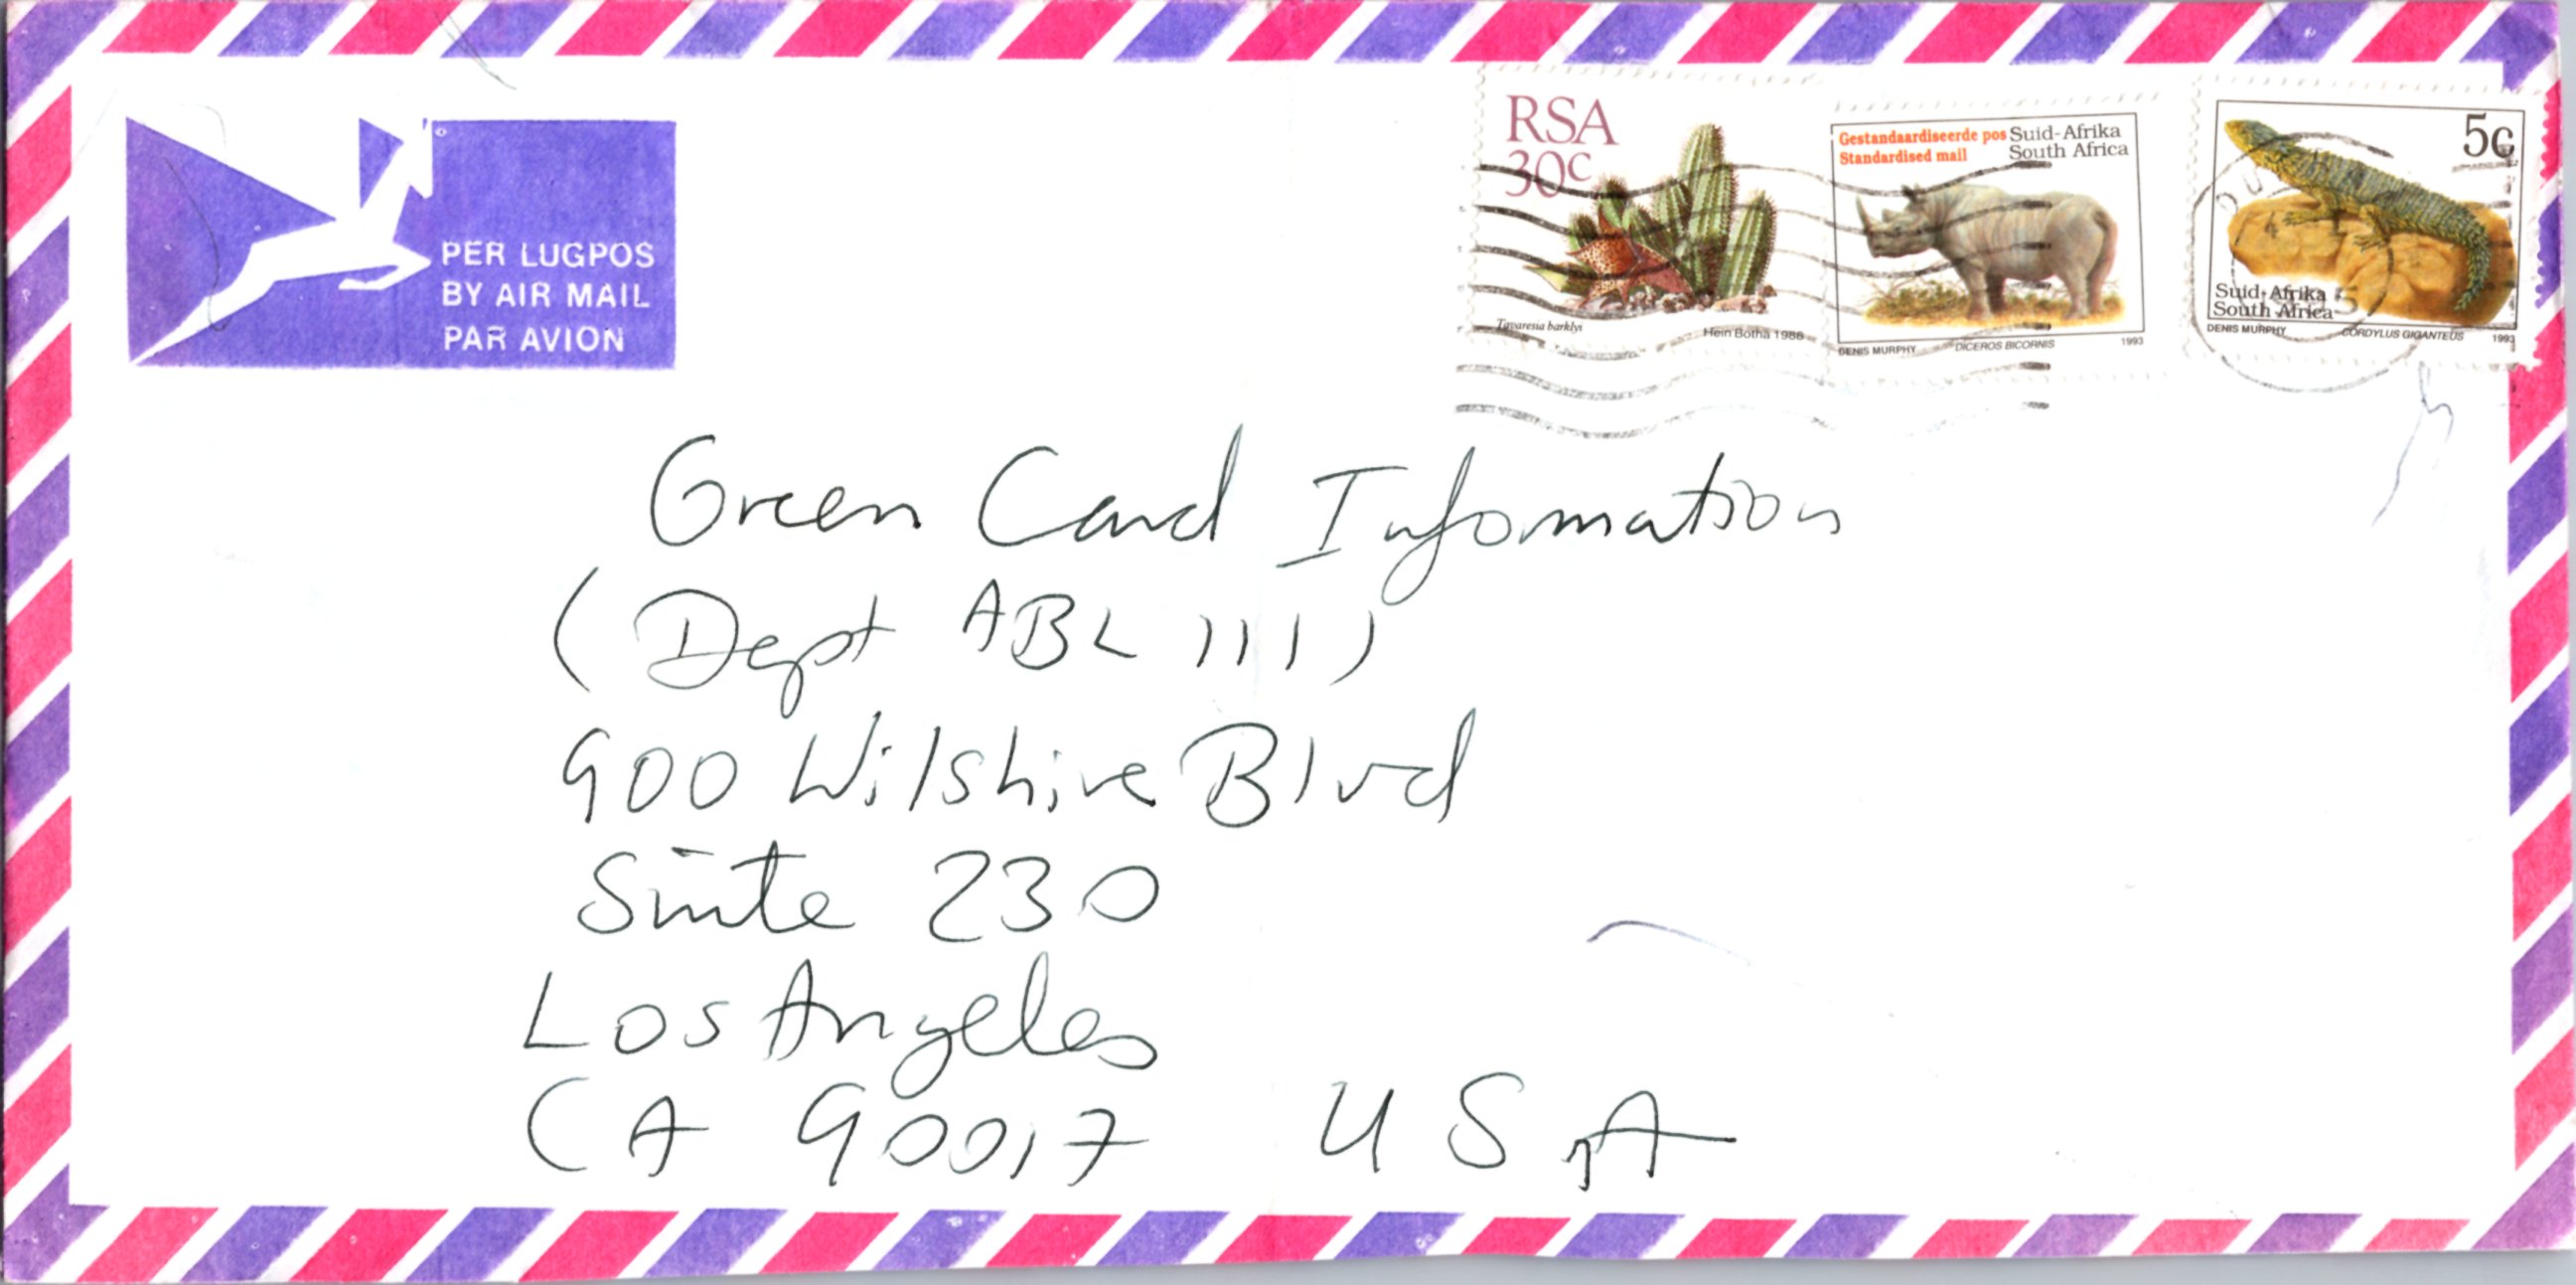 PER LUGPOS
BY AIR MAIL
PAR AVION
RSA
30c
Tavaresia barklyi
Hein Botha 1988
Gestandaardiseerde pos Suid-Afrika
Standardised mail South Africa
DENIS MURPHY DICEROS BICORNIS 1993
5c
Suid-Afrika
South Africa
DENIS MURPHY CORDYLUS GIGANTEUS 1993
Green Card Information
(Dept ABL 111)
900 Wilshire Blvd
Suite 230
Los Angeles
CA 90017 USA